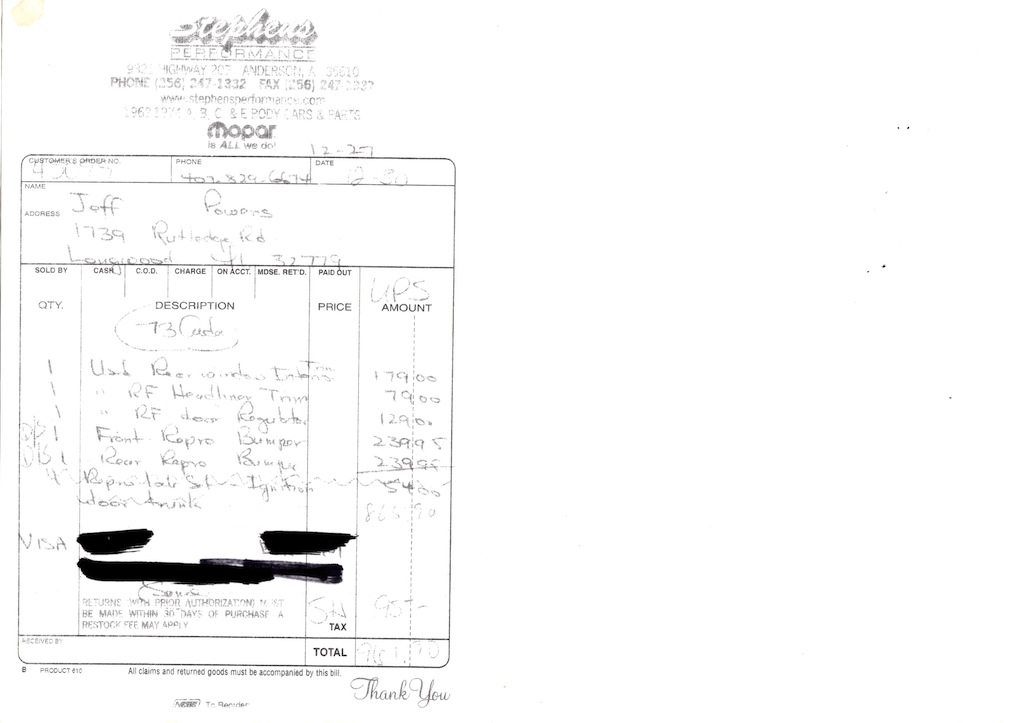 Stephens
PERFORMANCE
HIGHWAY 207 ANDERSON, A 35610
PHONE (256) 247-1332 FAX (256) 247-1337
www.stephensperformance.com
1962-1974 A, B, C & E BODY CARS & PARTS
mopar
is ALL we do!
12-27
CUSTOMER'S ORDER NO. PHONE DATE
407-829-6674 12-30
NAME
Jeff Powers
ADDRESS
1739 Rutledge Rd
Longwood Fl 32779
SOLD BY CASH C.O.D. CHARGE ON ACCT. MDSE. RET'D. PAID OUT
UPS
QTY. DESCRIPTION PRICE AMOUNT
73 Cuda
1 Used Rear window Interior Trim 179.00
1 " RF Headliner Trim 79.00
1 " RF door Regulator 129.00
1 Front Repro Bumper 239.95
1 Rear Repro Bumper 239.95
Repro lock Set Ignition 54.00
door trunk
866.90
VISA
RETURNS (WITH PRIOR AUTHORIZATION) MUST
BE MADE WITHIN 30 DAYS OF PURCHASE A
RESTOCK FEE MAY APPLY
SH 95-
TAX
RECEIVED BY
TOTAL 961.90
B PRODUCT 610 All claims and returned goods must be accompanied by this bill.
Thank You
NEBS To Reorder